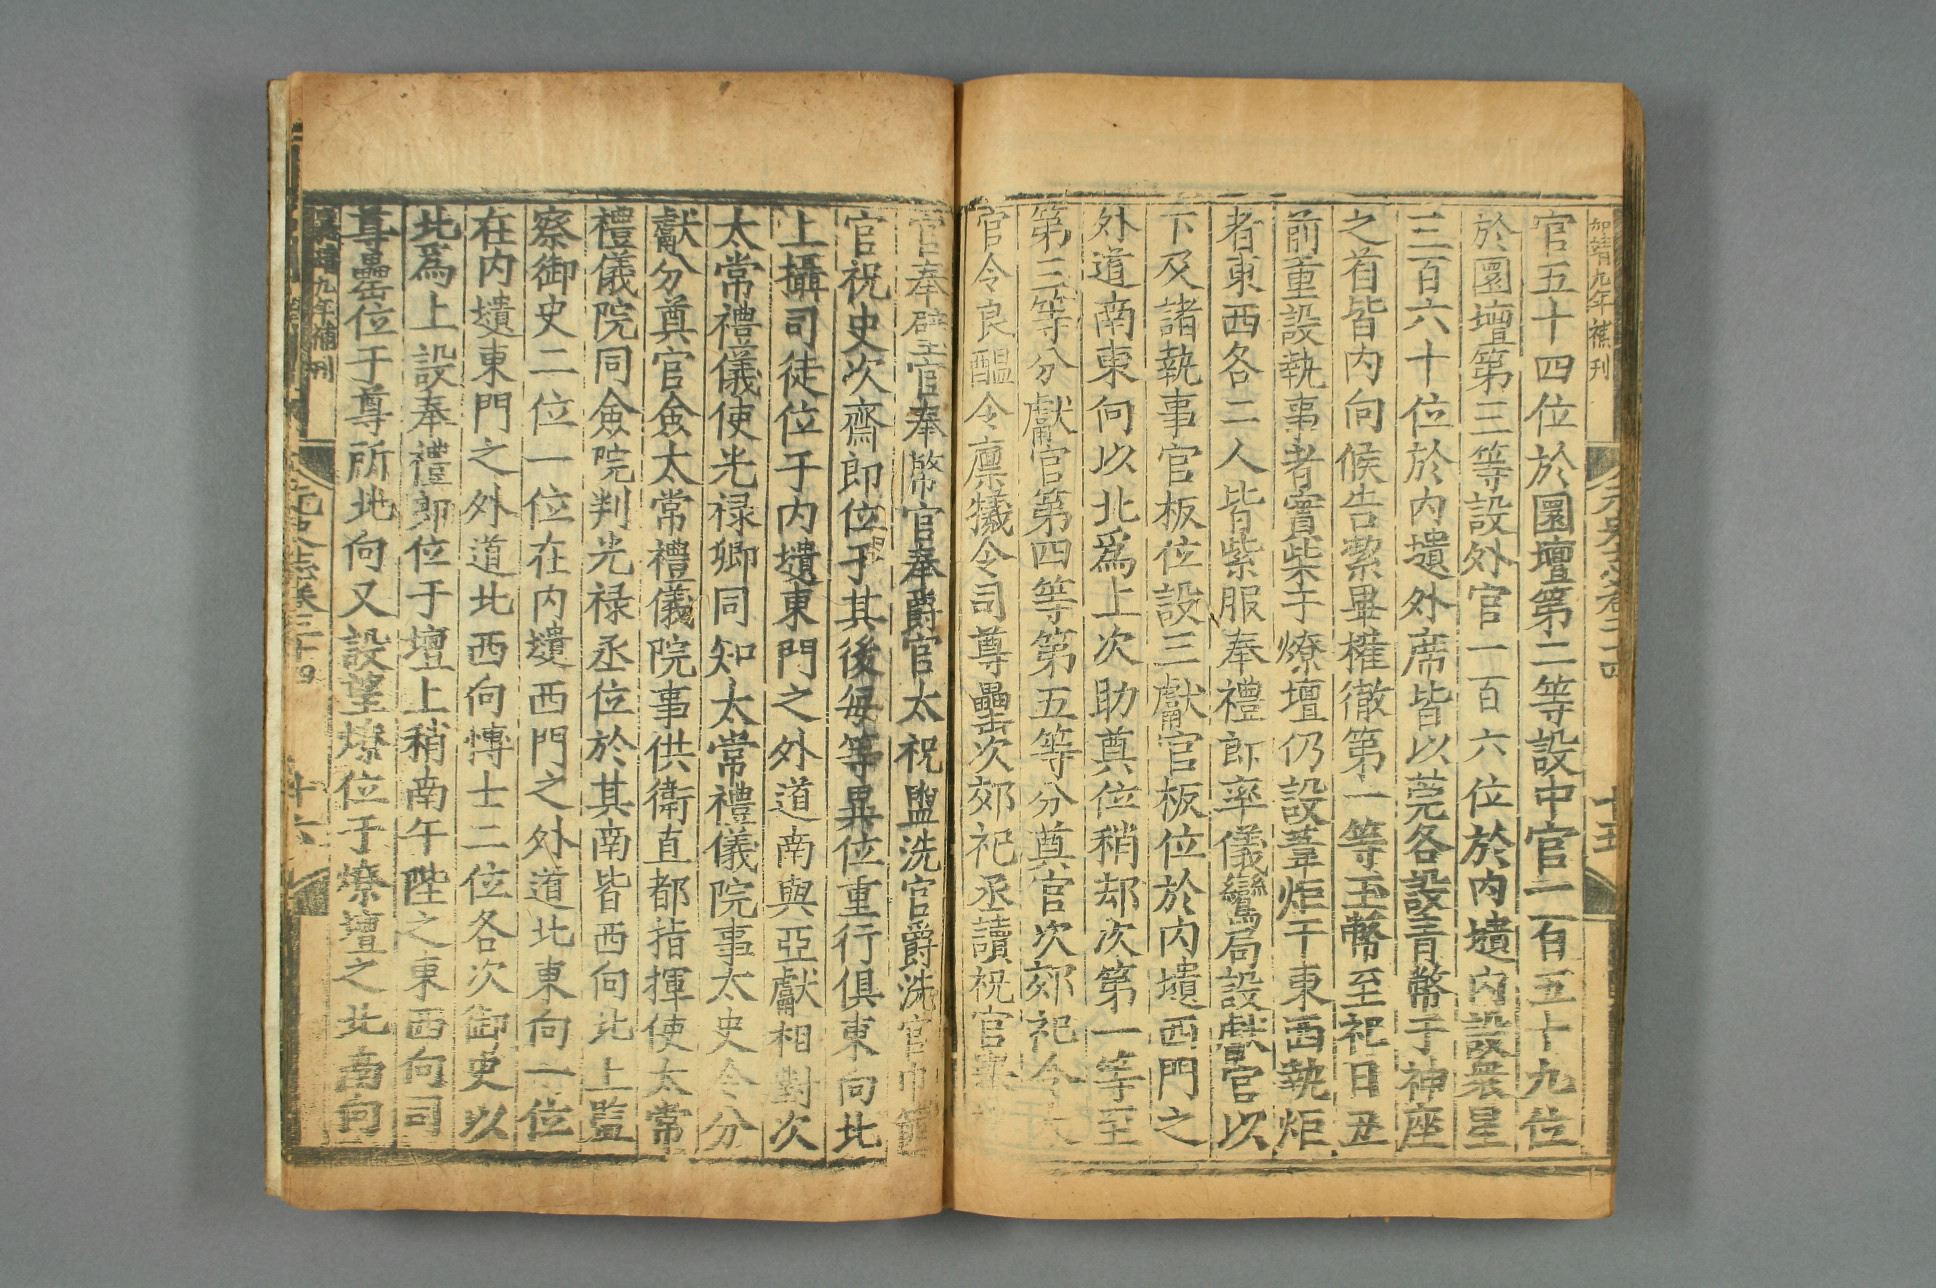 嘉靖九年補刊
元史志卷二十四
十五
官五十四位於圜壇第二等設中官一百五十九位
於圜壇第三等設外官一百六位於內壝內設衆星
三百六十位於內壝外席皆以莞各設青幣于神座
之首皆內向候告潔畢權徹第一等玉幣至祀日丑
前重設執事者實柴于燎壇仍設葦炬于東西執炬
者東西各二人皆紫服奉禮郎率儀鸞局設獻官以
下及諸執事官板位設三獻官板位於內壝西門之
外道南東向以北爲上次助奠位稍却次第一等至
第三等分獻官第四等第五等分奠官次郊祀令太
官令良醞令廩犧令司尊罍次郊祀丞讀祝官
官奉璧官奉幣官奉爵官太祝盥洗官爵洗官巾篚
官祝史次齋郎位于其後每等異位重行俱東向北
上攝司徒位于內壝東門之外道南與亞獻相對次
太常禮儀使光禄卿同知太常禮儀院事太史令分
獻分奠官僉太常禮儀院事供衛直都指揮使太常
禮儀院同僉院判光禄丞位於其南皆西向北上監
察御史二位一位在內壝西門之外道北東向一位
在內壝東門之外道北西向博士二位各次御史以
北爲上設奉禮郎位于壇上稍南午陛之東西向司
尊罍位于尊所北向又設望燎位于燎壇之北南向
嘉靖九年補刊
元史志卷二十四
十六